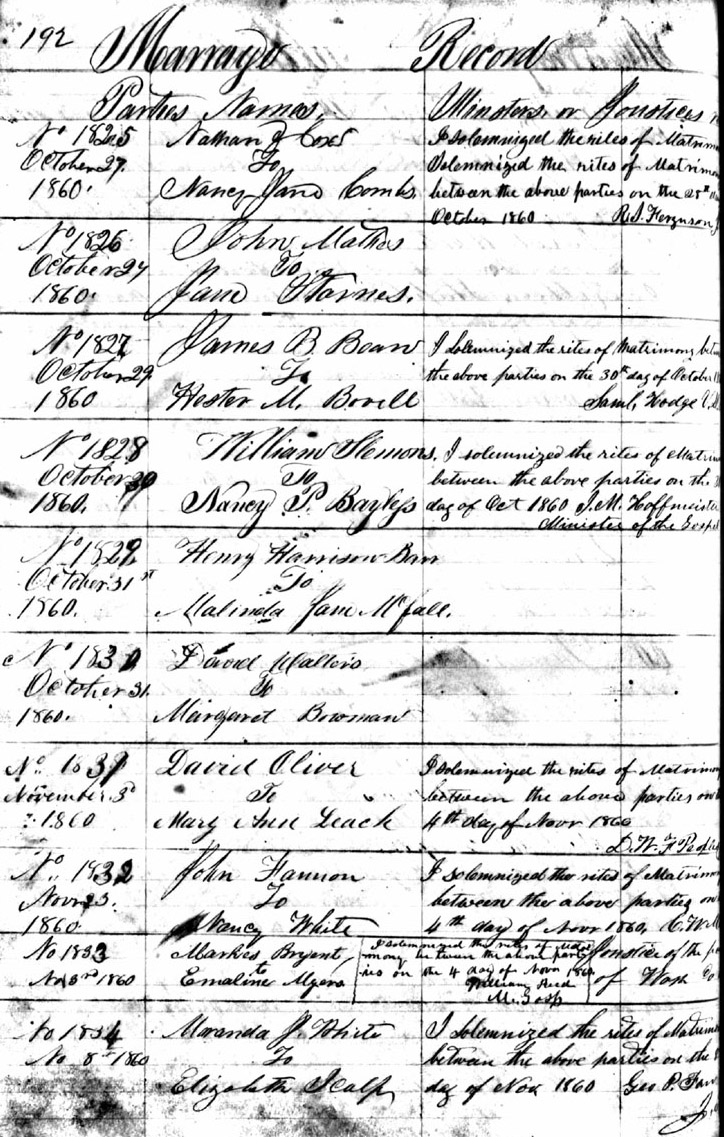 192 Marrage Record
Parties Names. Ministers or Joustices
No 1825 Nathan J Cox
October 27. To
1860. Nancy Jane Combs.
I solemnized the rites of Matrimo
Solemnized the rites of Matrimo
between the above parties on the 28th
October 1860 R.S. Ferguson J
No 1826 John Mathes
October 27 To
1860. Jane Starnes.
No 1827 James B. Bean
October 29 To
1860 Hester M. Bovell
I solemnized the rites of Matrimony betw
the above parties on the 30th day of October
Saml. Hodge
No 1828 William Slemons.
October 29 To
1860. Nancy P. Bayless
I solemnized the rites of Matrim
between the above parties on the
day of Oct 1860 J.M. Hoffmeister
Minister of the Gospel
No 1829 Henry Harrison Barr
October 31st To
1860. Malinda Jane McFall.
No 1830 David Walters
October 31. To
1860. Margaret Bowman
No. 1831 David Oliver
November 3d To
1860 Mary Ann Leach
I solemnized the rites of Matrimon
between the above parties on
4th day of Novr 1860
D. W. F. Peoples
No. 1832 John Fannon
Novr 3. To
1860 Nancy White
I solemnized the rites of Matrimo
between the above parties on
4th day of Novr 1860.
Joustice of the
of Wash Co
No 1833 Markes Bryent
to
Nov 3rd 1860 Emaline Myers
I solemnized the rites of Matri
mony between the above part
ies on the 4 day of Novr 1860
William Reed
M. Gosp
No 1834 J. White
No 8th 1860 To
Elizabeth Scalp
I solemnized the rites of Matrimo
between the above parties on the
day of Nov 1860 Geo P.